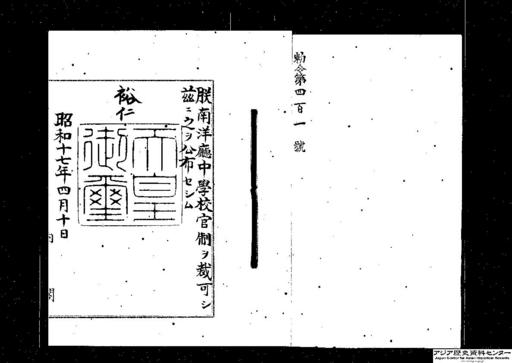 勅令第四百一號
朕南洋廳中學校官制ヲ裁可シ
茲ニ之ヲ公布セシム
裕仁
天皇
御璽
昭和十七年四月十日
内閣
アジア歴史資料センター
Japan Center for Asian Historical Records